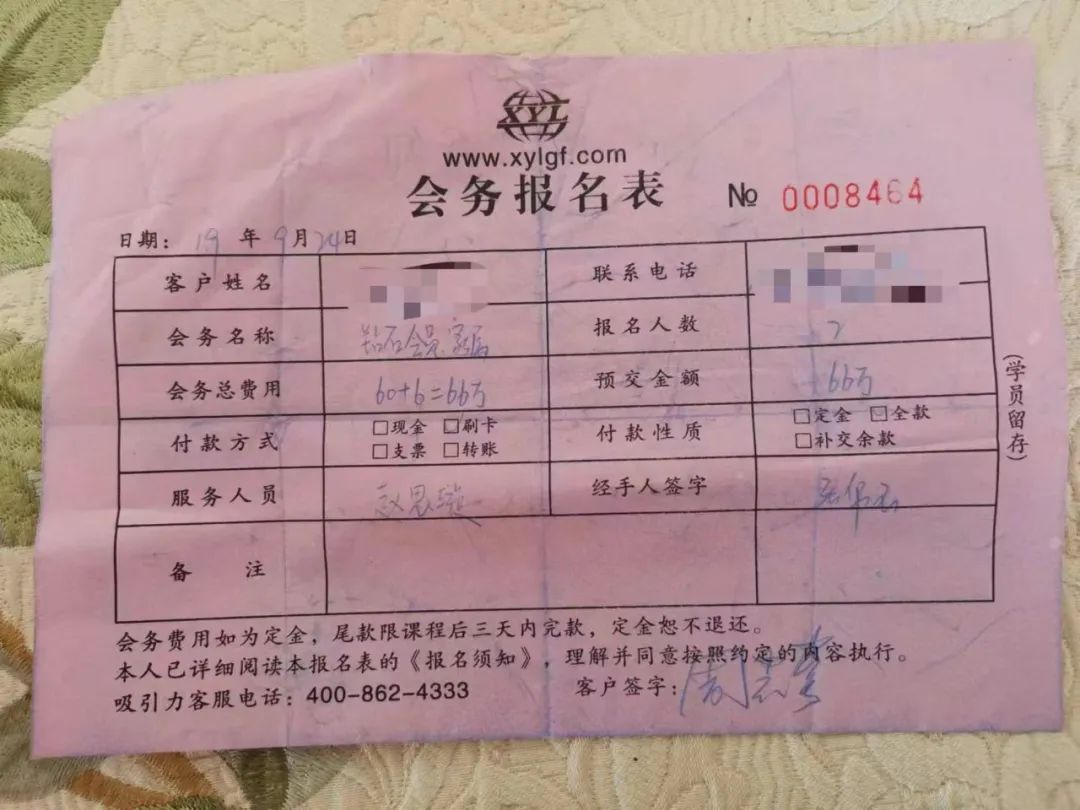 XYL
www.xylgf.com
会务报名表 № 0008464
日期: 19年9月24日
客户姓名 联系电话
会务名称 钻石会员.家属 报名人数 2
会务总费用 60+6=66万 预交金额 66万
付款方式 □现金 □刷卡 □支票 □转账 付款性质 □定金 ☑全款 □补交余款
服务人员 经手人签字
备注
(学员留存)
会务费用如为定金，尾款限课程后三天内完款，定金恕不退还。
本人已详细阅读本报名表的《报名须知》，理解并同意按照约定的内容执行。
吸引力客服电话：400-862-4333 客户签字：